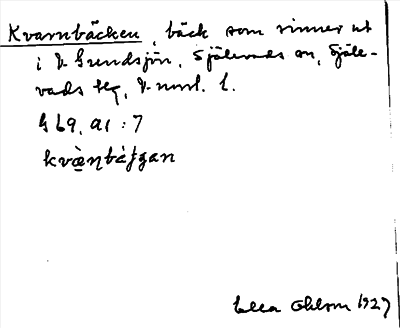 Kvarnbäcken, bäck som rinner ut
i V. Gundsjön, Själevads sn, Själe-
vads tg, V-norrl. l.
G 69, a1 : 7
kvæ̀ηbàfgan
Ella Ohlson 1927